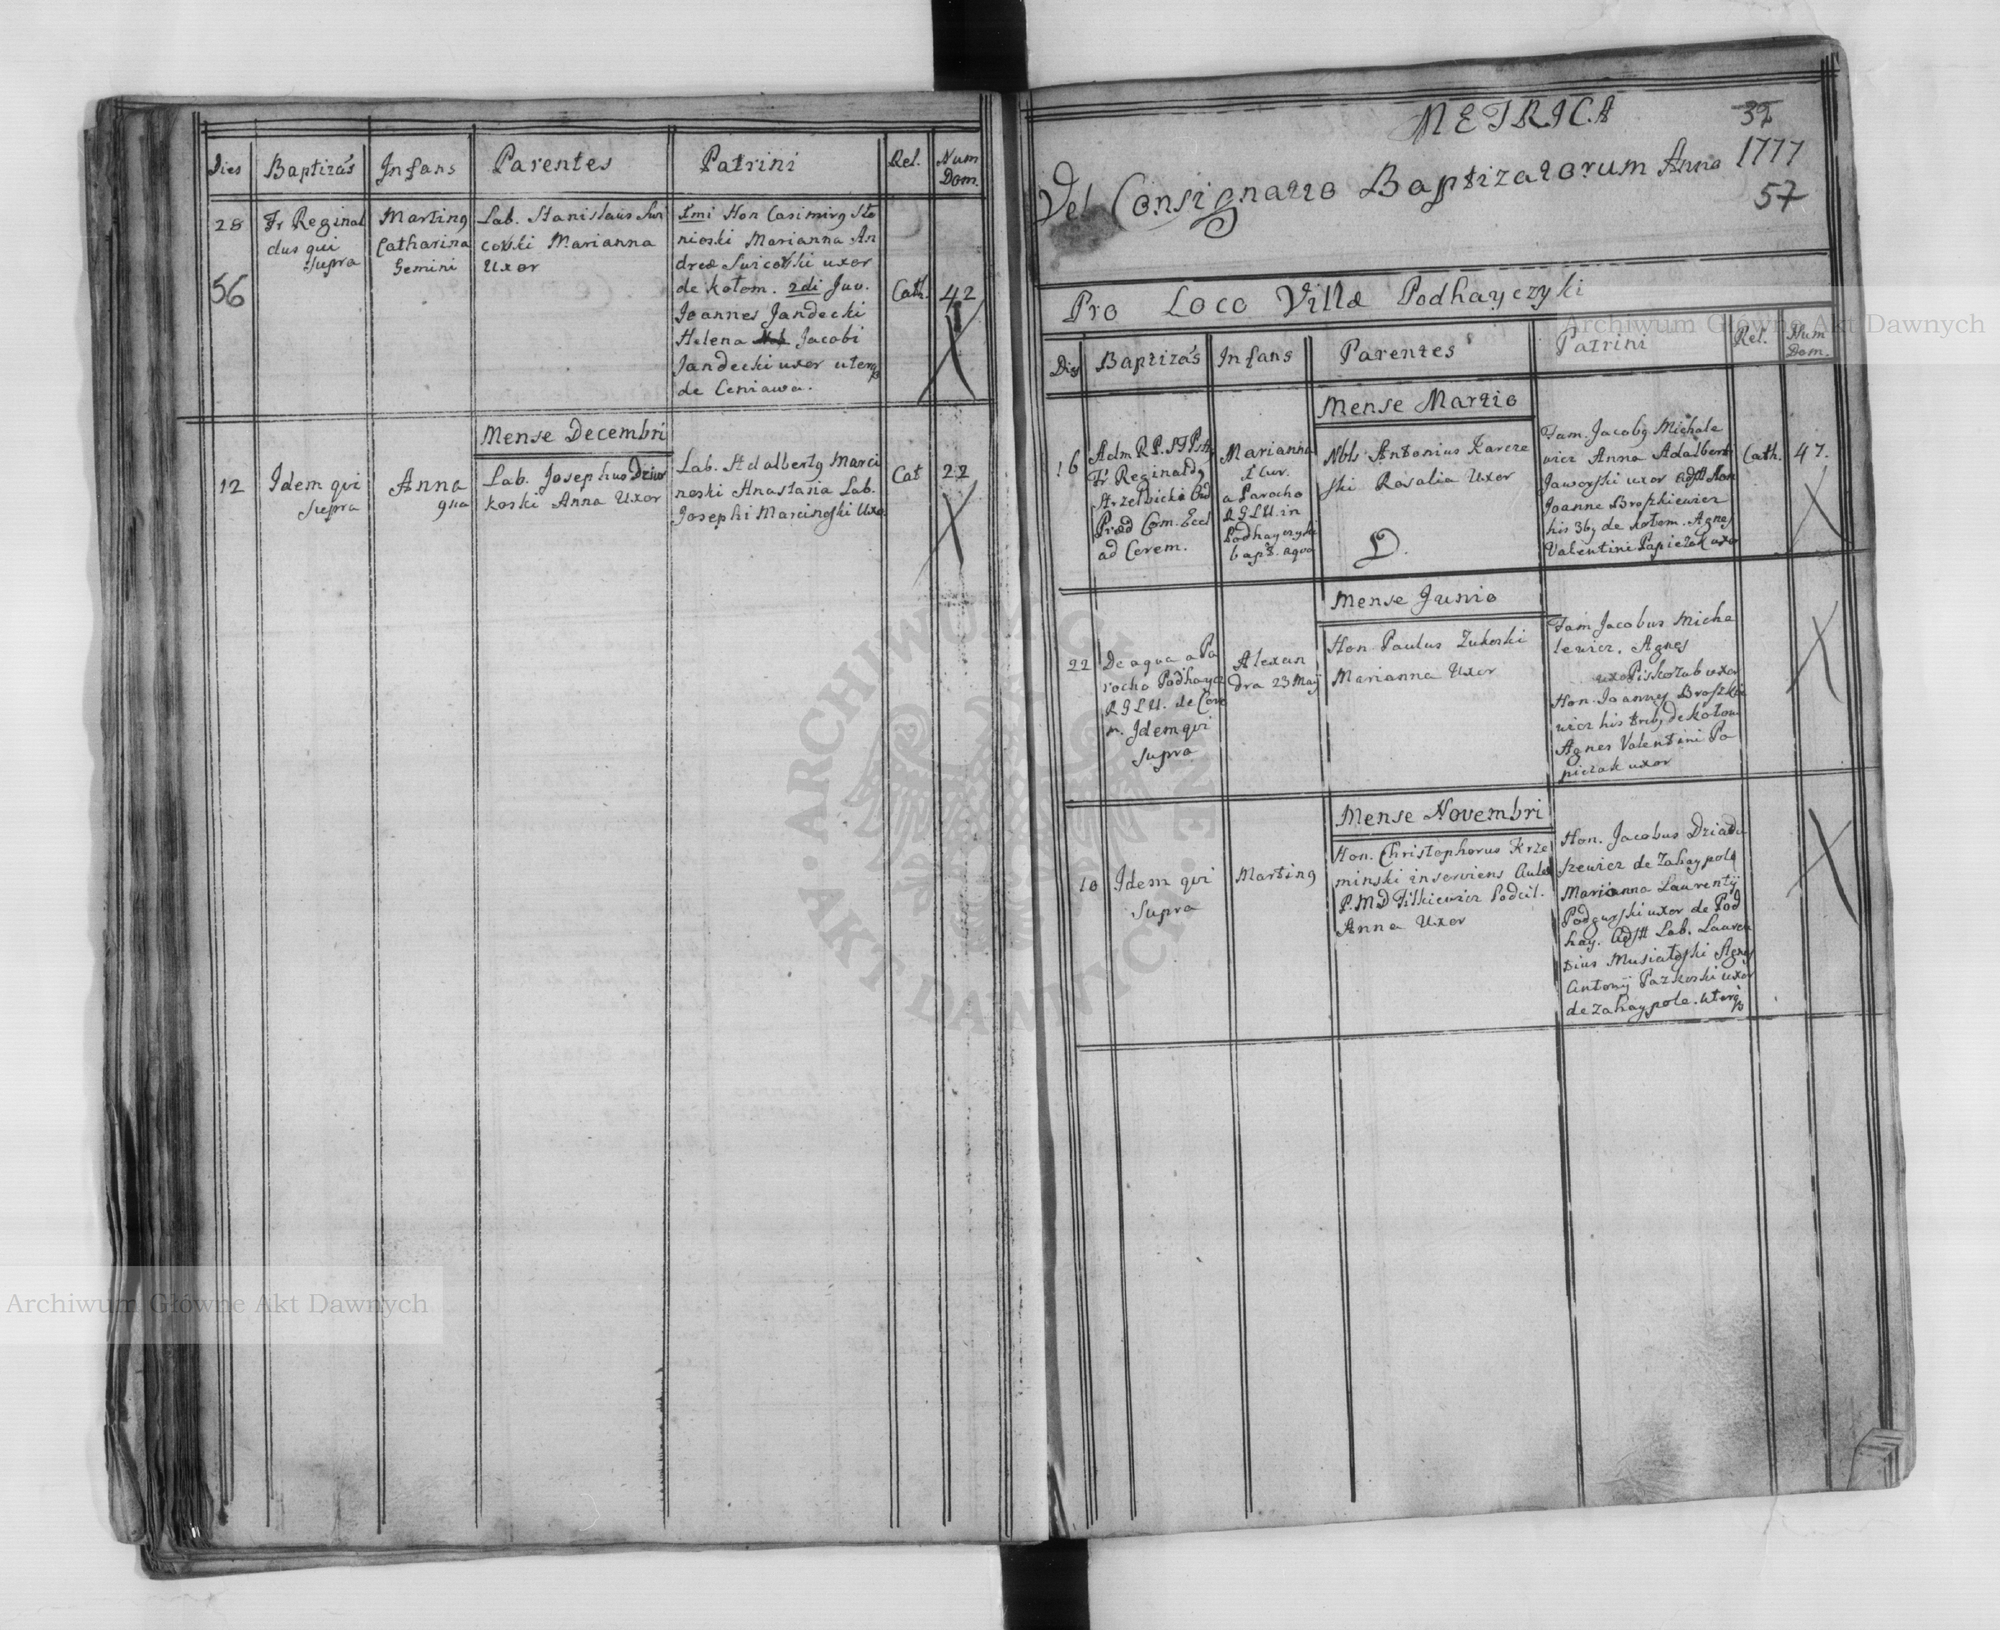 Dies Baptizãs Infans Parentes Patrini Rel. Num Dom.
28
56
Fr Reginal
dus qui
supra
Martinꝯ
Catharina
Gemini
Lab. Stanislaus Swi
covski Marianna
Uxor
1mi Hon Casimirꝯ Sto
nioski Marianna An
dreæ Swicovski uxor
de kołom. 2di Juv.
Joannes Jandecki
Helena Jacobi
Jandecki uxor uterqꝫ
de Ceniawa.
Cath.
42
Mense Decembri
12
Idem qvi
supra
Anna
Lab. Josephus Dziur
koski Anna Uxor
Lab. Adalbertꝯ Marci
noski Anastasia Lab.
Josephi Marcinoski Uxor
Cat
22
METRICA
32
Vel Consignatio Baptizatorum Anno 1777
57
Pro Loco Villæ Podhayczyki
Dies Baptizãs Infans Parentes Patrini Rel. Num Dom.
Mense Martio
16
Adm R P.
Fr Reginaldꝯ
Strzelbicki Ord
Præd Com. Eccl
ad Cerem.
Marianna
a Parocho
R G L U. in
Podhayczyki
bapt. aqva
Nbls Antonius Karcze
ski Rosalia Uxor
D.
Fam. Jacobꝯ Michale
wicz Anna Adalberti
Jaworski uxor Adstt Hon
Joanne Broszkiewicz
his 3bꝯ de kołom. Agnes
Valentini Papieżak uxor
Cath.
47.
Mense Junio
22
De aqva a Pa
rocho Podhaycz
R G L U. de Cere
m. Idem qvi
supra
Alexan
dra 23 Maij
Hon. Paulus Zukoski
Marianna Uxor
Fam Jacobus Micha
lewicz, Agnes
Piskozub uxor
Hon. Joannes Broszkie
wicz his tribꝯ de kołom
Agnes Valentini Pa
pieżak uxor
Mense Novembri
10
Idem qvi
supra
Martinꝯ
Hon. Christophorus Krze
minski inserviens Aulæ
P. M D Filkiewicz Podcil.
Anna Uxor
Hon. Jacobus Dziadu
szewicz de Zahaypole
Marianna Laurentij
Podgurski uxor de Pod
hay. Adstt Lab. Lauren
tius Musiatoski Agnes
Antonij Pazkoski uxor
de Zahaypole. uterqꝫ
Archiwum Główne Akt Dawnych
Archiwum Główne Akt Dawnych
ARCHIWUM GŁÓWNE AKT DAWNYCH